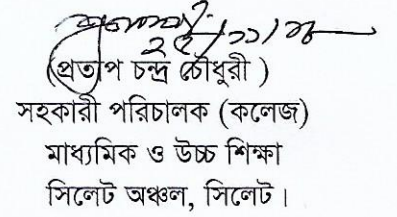 ২৫/১১/১৮
(প্রতাপ চন্দ্র চৌধুরী )
সহকারী পরিচালক (কলেজ)
মাধ্যমিক ও উচ্চ শিক্ষা
সিলেট অঞ্চল, সিলেট।